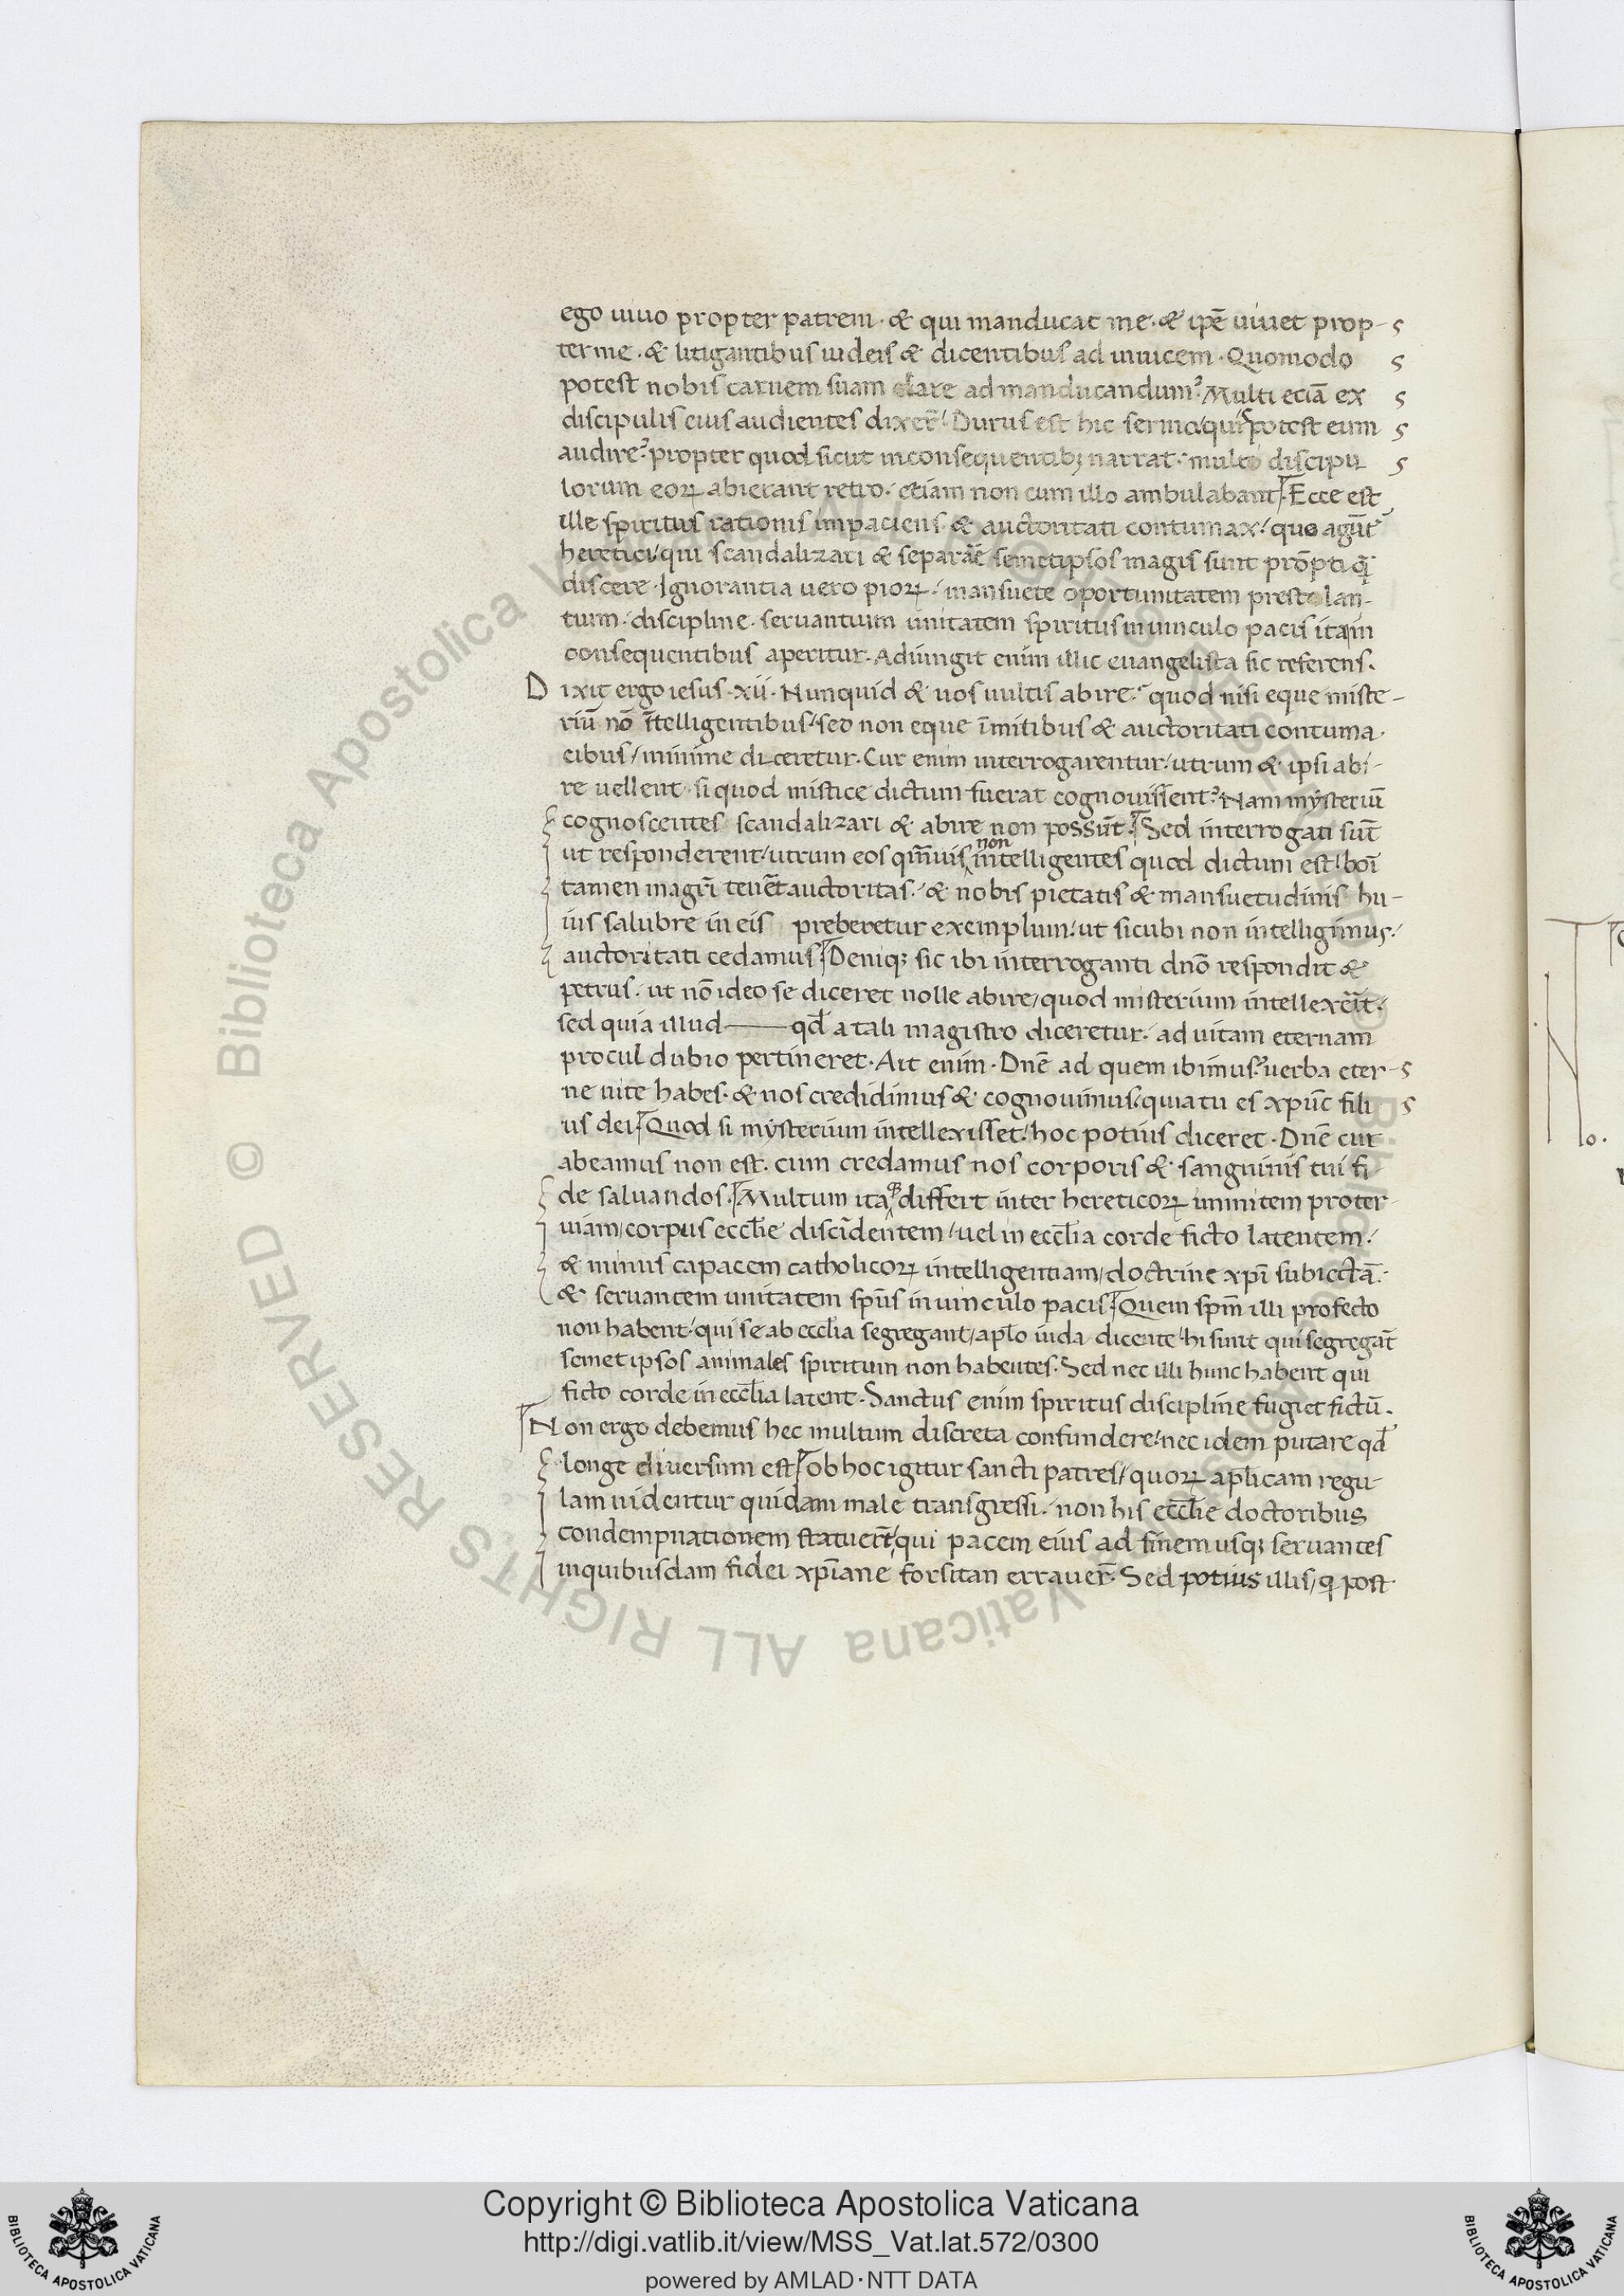 ego uiuo propter patrem · & qui manducat me · & ip̄e uiuet prop-
ter me · & litigantibus iudeis & dicentibus ad inuicem · Quomodo
potest nobis carnem suam dare ad manducandum? Multi eciā ex
discipulis eius audientes dixer̄ / Durus est hic sermo / quis potest eum
audire? propter quod sicut inconsequentib; narrat · multi discipu
lorum eoꝝ abierant retro · etiam non cum illo ambulabant · Ecce est
ille spiritus rationis impaciens · & auctoritati contumax / quo agūt
heretici / qui scandalizari & separar̄e semetipsos magis sunt prōpti q̄
discere · Ignorantia uero pioꝝ · mansuete oportunitatem prestolan-
tium · discipline · seruantium unitatem spiritus in uinculo pacis ita in
consequentibus aperitur · Adiungit enim illic euangelista sic referens ·
D ixit ergo iesus · xii · Nunquid & uos uultis abire · quod nisi eque miste-
riū nō ītelligentibus / sed non eque īmitibus & auctoritati contuma ·
cibus / minime diceretur · Cur enim interrogarentur / utrum & ipsi abi-
re uellent · si quod mistice dictum fuerat cognouissent? Nam mysteriū
cognoscentes scandalizari & abire non possūt · Sed interrogati sūt
ut responderent / utrum eos qm̄uis non intelligentes quod dictum est / boī
tamen magr̄i tenēt auctoritas · & nobis pietatis & mansuetudinis hu-
ius salubre in eis preberetur exemplum / ut sicubi non intelligimus /
auctoritati cedamus Deniq; sic ibi interroganti dn̄o respondit &
petrus · ut nō ideo se diceret nolle abire / quod misterium intellexerit ·
sed quia illud — qd̄ a tali magistro diceretur · ad uitam eternam
procul dubio pertineret · Ait enim · Dn̄e ad quem ibimus? uerba eter-
ne uite habes · & nos credidimus & cognouimus / quia tu es xp̄ūc fili
us dei Quod si mysterium intellexisset / hoc potius diceret · Dn̄e cur
abeamus non est · cum credamus nos corporis & sanguinis tui fi
de saluandos · Multum itaq; differt inter hereticoꝝ inmitem proter
uiam / corpus eccl̄ie discidentem / uel in eccl̄ia corde ficto latentem /
& minus capacem catholicoꝝ intelligentiam / doctrine xp̄i subiectā ·
& seruantem unitatem sp̄us in uinculo pacis Quem sp̄m illi profecto
non habent / qui se ab ecclia segregant / apl̄o iuda dicente / hi sunt qui segregāt
semet ipsos animales spiritum non habentes · Sed nec illi hunc habent qui
ficto corde in eccl̄ia latent · Sanctus enim spiritus discipline fugiet fictū ·
Non ergo debemus hec multum discreta confundere / nec idem putare qd̄
longe diuersum est ob hoc igitur sancti patres / quoꝝ apl̄icam regu-
lam uidentur quidam male transgressi · non his eccl̄ie doctoribus
condempnationem statuer̄t / qui pacem eius ad finem usq; seruantes
in quibusdam fidei xp̄iane forsitan errauer̄ · Sed potius illis / q post
© Biblioteca Apostolica Vaticana ALL RIGHTS RESERVED
Copyright © Biblioteca Apostolica Vaticana
http://digi.vatlib.it/view/MSS_Vat.lat.572/0300
powered by AMLAD·NTT DATA
BIBLIOTECA APOSTOLICA VATICANA
BIBLIOTECA APOSTOLICA VATICANA